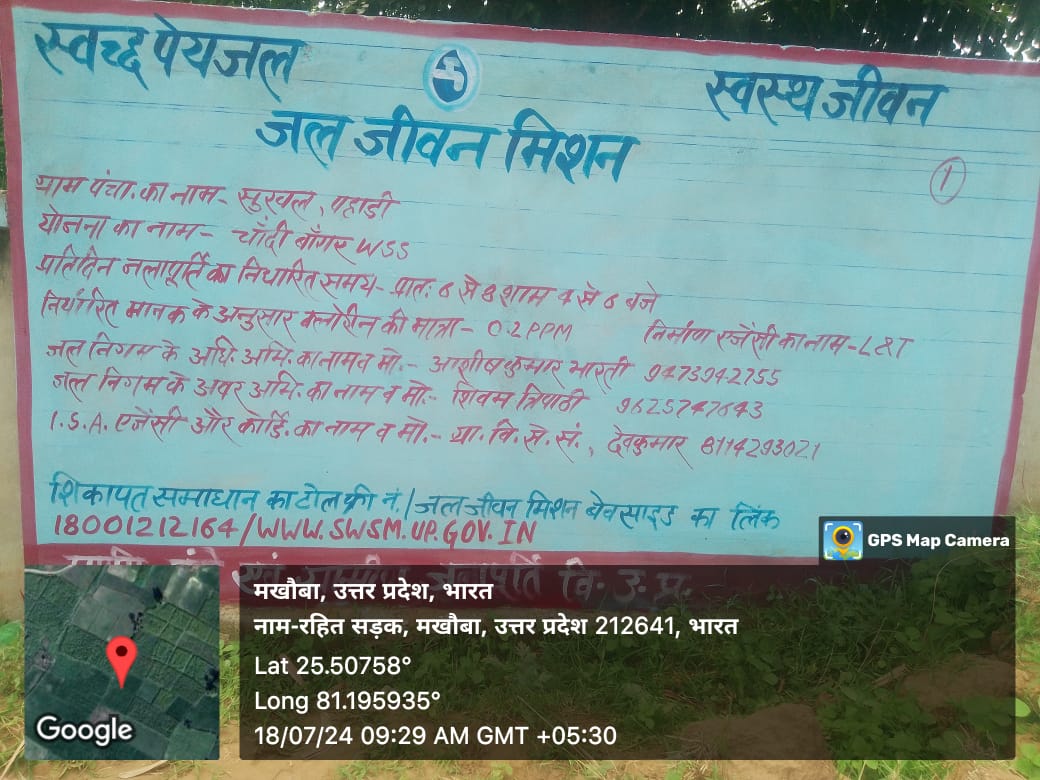 स्वच्छ पेयजल
स्वस्थ जीवन
जल जीवन मिशन
1
ग्राम पंचा. का नाम- सुरवल, पहाडी
योजना का नाम- चाँदी बाँगर WSS
प्रतिदिन जलापूर्ति का निर्धारित समय- प्रात: 6 से 8 शाम 4 से 6 बजे
निर्धारित मानक के अनुसार क्लोरीन की मात्रा- 0.2 PPM
निर्माण एजेंसी का नाम- L&T
जल निगम के अधि. अभि. का नाम व मो.- आशीष कुमार भारती 9473942755
जल निगम के अवर अभि. का नाम व मो.- शिवम त्रिपाठी 9625747643
I.S.A. एजेंसी और कोर्डि. का नाम व मो.- ग्रा. वि. से. सं., देवकुमार 8114293021
शिकायत समाधान का टोल फ्री नं./जल जीवन मिशन बेवसाइड का लिंक
18001212164/WWW.SWSM.UP.GOV.IN
एवं जलापूर्ति वि. उ. प्र.
GPS Map Camera
मखौबा, उत्तर प्रदेश, भारत
नाम-रहित सड़क, मखौबा, उत्तर प्रदेश 212641, भारत
Lat 25.50758°
Long 81.195935°
18/07/24 09:29 AM GMT +05:30
Google